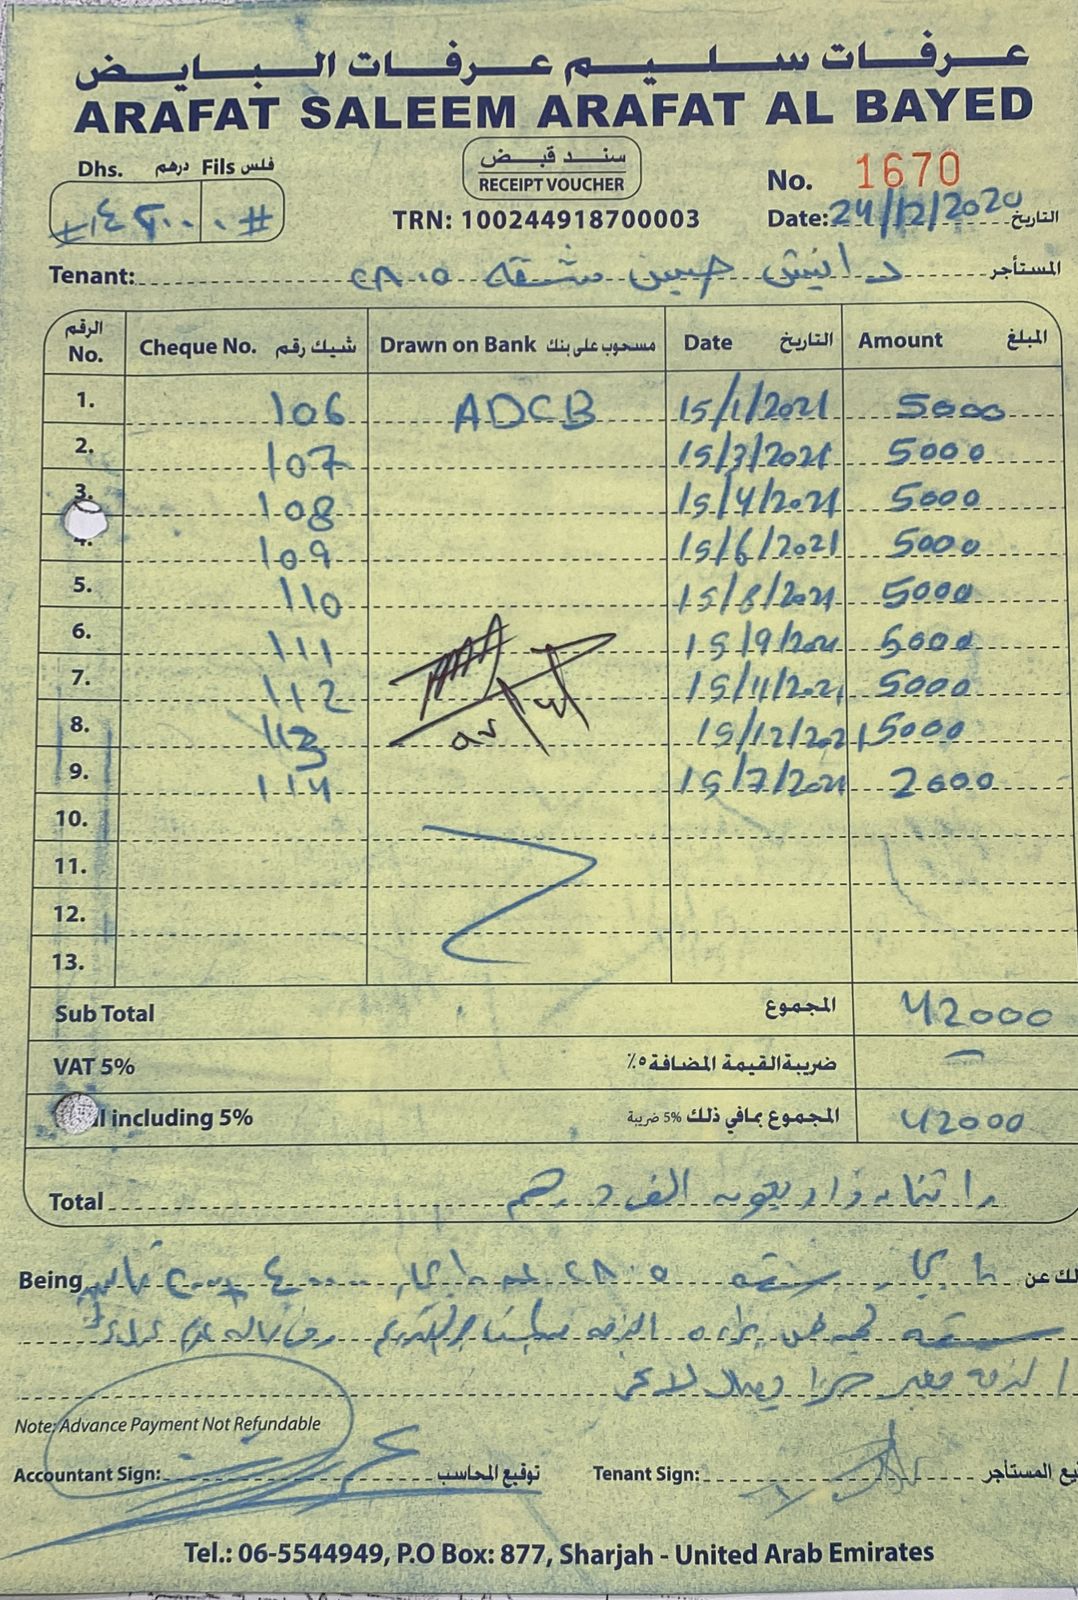 عرفات سليم عرفات البايض
ARAFAT SALEEM ARAFAT AL BAYED
Dhs. درهم Fils فلس
سند قبض
RECEIPT VOUCHER
No. 1670
#٤٢٠٠٠.#
TRN: 100244918700003
Date: 24/12/2020 التاريخ
Tenant: دانيش حسين شقه ٢٨٠٥ المستأجر
الرقم No. Cheque No. شيك رقم Drawn on Bank مسحوب على بنك Date التاريخ Amount المبلغ
1. 106 ADCB 15/1/2021 5000
2. 107 15/3/2021 5000
3. 108 15/4/2021 5000
4. 109 15/6/2021 5000
5. 110 15/8/2021 5000
6. 111 15/9/2021 5000
7. 112 15/11/2021 5000
8. 113 15/12/2021 5000
9. 114 15/7/2021 2000
10.
11.
12.
13.
Sub Total المجموع 42000
VAT 5% ضريبة القيمة المضافة ٥٪ –
l including 5% المجموع بمافي ذلك 5% ضريبة 42000
Total اثنان واربعون الف درهم
Being شقه ٢٨٠٥ ٤٠٠٠٠ + ٢٠٠٠ لك عن
براءه الذمه
الذمه
Note: Advance Payment Not Refundable
Accountant Sign: توقيع المحاسب Tenant Sign: يع المستأجر
Tel.: 06-5544949, P.O Box: 877, Sharjah - United Arab Emirates